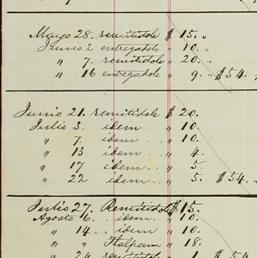 Mayo 28. remitidole $ 15. "
Junio 2 entregadole " 10. "
" 7. remitidole " 20. "
" 16 entregadole " 9. " $54.
Junio 21. remitidole $ 20.
Julio 3. idem . . " 10.
" 7 idem . . " 10.
" 13 idem . . " 4.
" 17 idem . . " 5.
" 22 idem . . . " 5. $54.
Julio 27. Remitidole $15.
Agosto 6. idem . . " 10.
" 14. . idem . . " 10.
" " " 18.
" 24 remitidole " 1. $54.